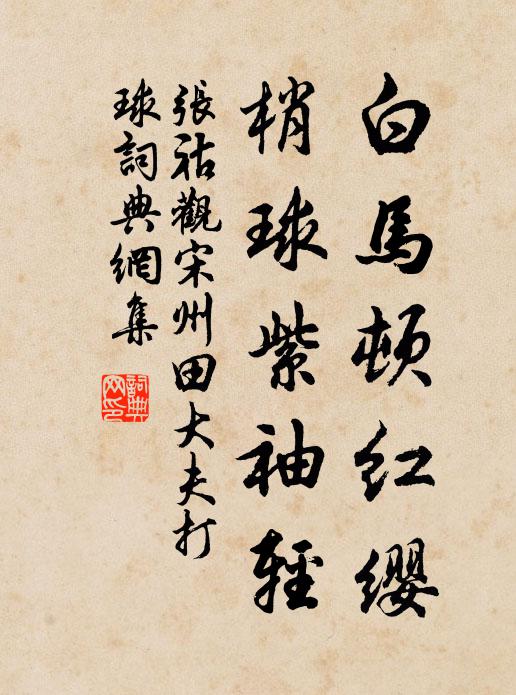 白馬頓紅纓
梢球紫袖輕
張祜觀宋州田大夫打
球詞典網集
詞典网印